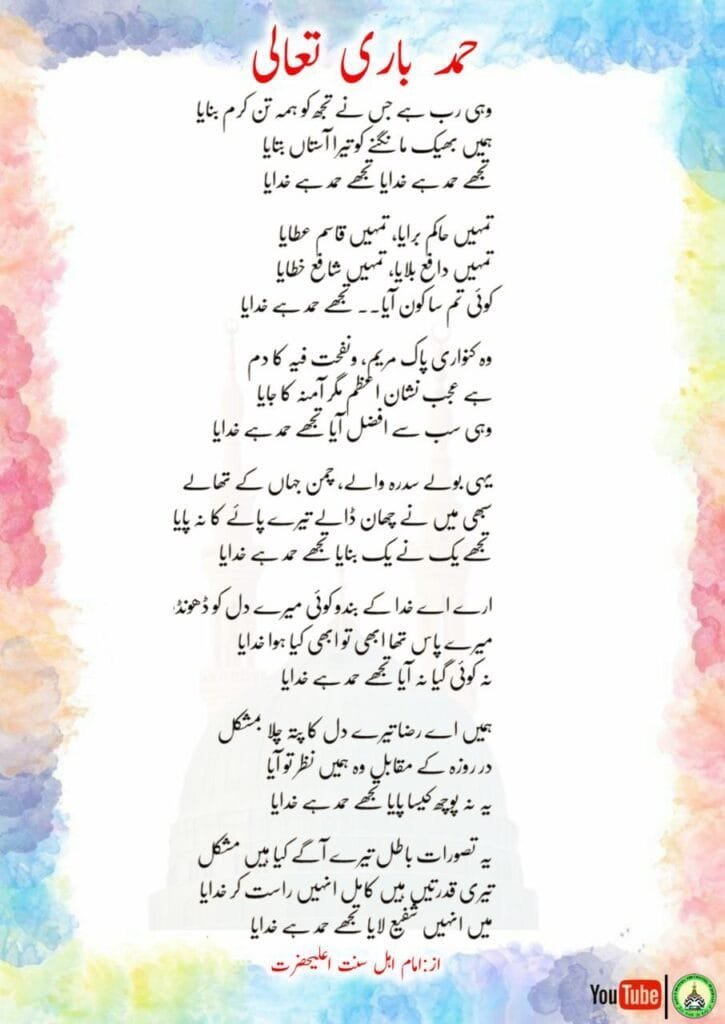 حمد باری تعالی
وہی رب ہے جس نے تجھ کو ہمہ تن کرم بنایا
ہمیں بھیک مانگنے کو تیرا آستاں بتایا
تجھے حمد ہے خدایا تجھے حمد ہے خدایا
تمہیں حاکم برایا، تمہیں قاسم عطایا
تمہیں دافع بلایا، تمہیں شافع خطایا
کوئی تم سا کون آیا.. تجھے حمد ہے خدایا
وہ کنواری پاک مریم، ونفخت فیہ کا دم
ہے عجب نشان اعظم مگر آمنہ کا جایا
وہی سب سے افضل آیا تجھے حمد ہے خدایا
یہی بولے سدرہ والے، چمن جہاں کے تھالے
سبھی میں نے چھان ڈالے تیرے پائے کا نہ پایا
تجھے یک نے یک بنایا تجھے حمد ہے خدایا
ارے اے خدا کے بندو کوئی میرے دل کو ڈھونڈ
میرے پاس تھا ابھی تو ابھی کیا ہوا خدایا
نہ کوئی گیا نہ آیا تجھے حمد ہے خدایا
ہمیں اے رضا تیرے دل کا پتہ چلا بمشکل
در روزہ کے مقابل وہ ہمیں نظر تو آیا
یہ نہ پوچھ کیسا پایا تجھے حمد ہے خدایا
یہ تصورات باطل تیرے آگے کیا ہیں مشکل
تیری قدرتیں ہیں کامل انہیں راست کر خدایا
میں انہیں شفیع لایا تجھے حمد ہے خدایا
از: امام اہل سنت اعلیحضرت
YouTube